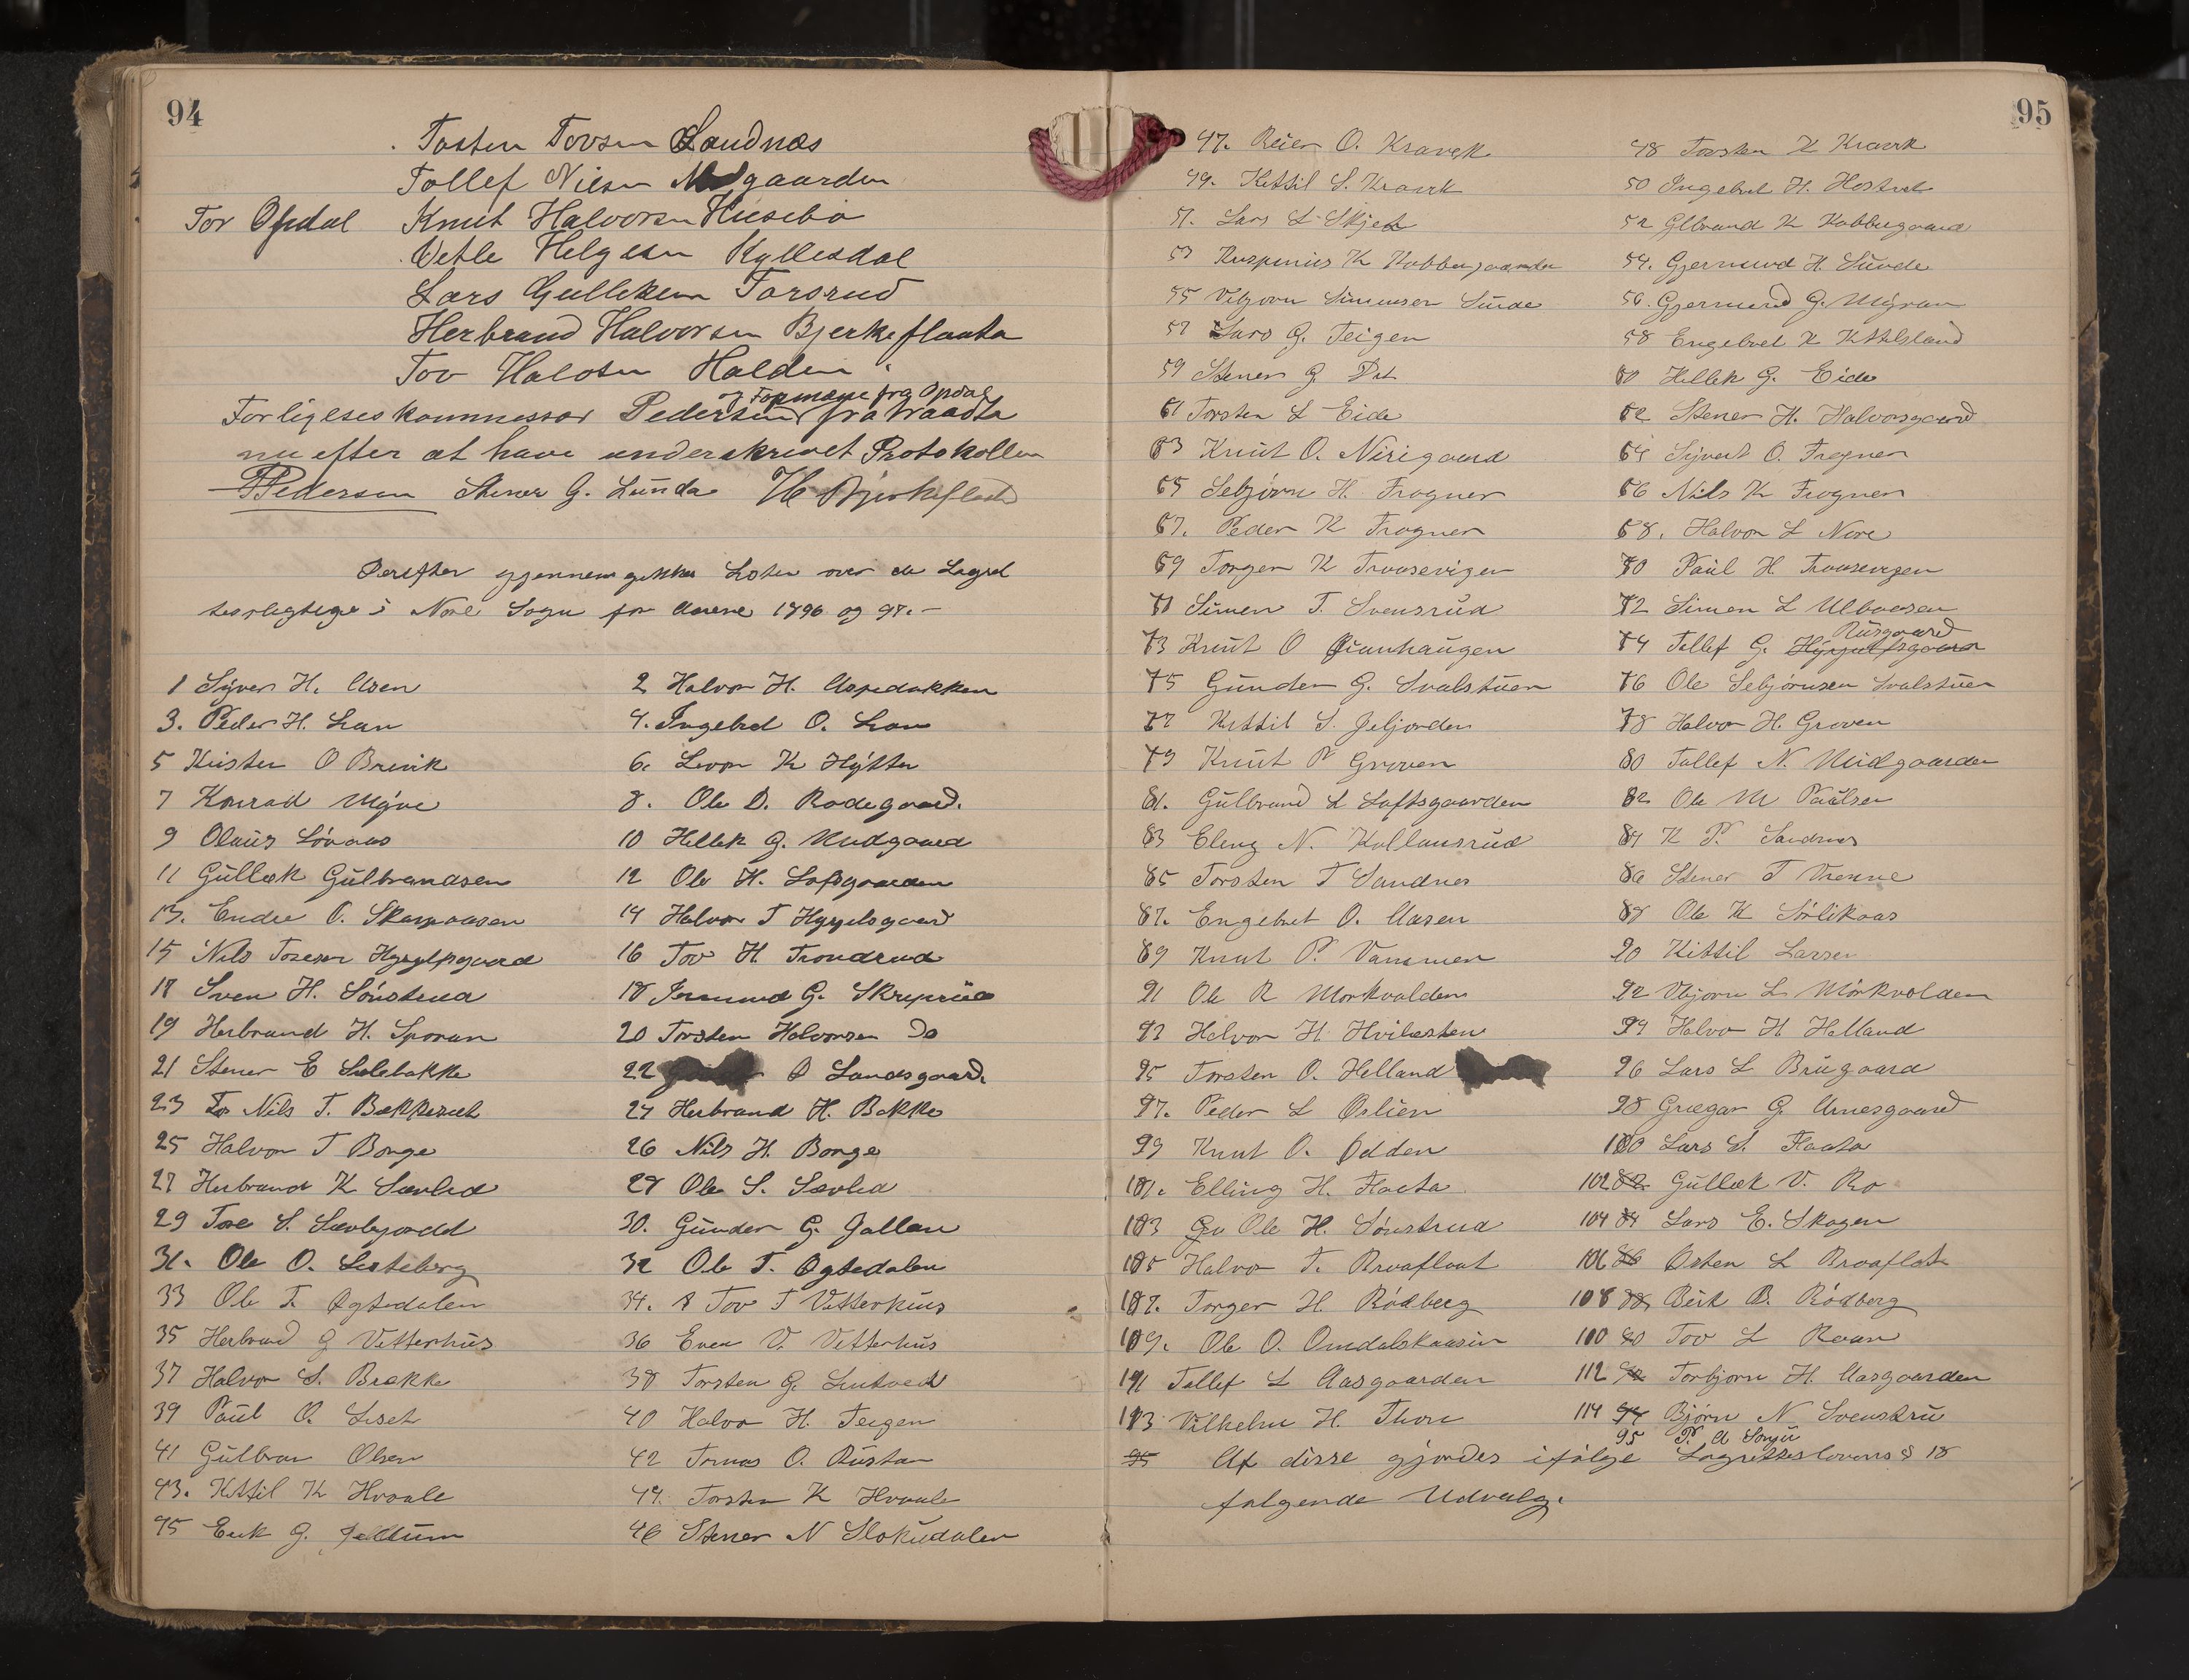 94
Tosten Tovsen Sandnæs
Tollef Nilsen gaarden
For Opdal Knut Halvorsen Husebø
Vetle Helgesen Kyllesdal
Lars Gulliksen Forsrud
Herbrand Halvorsen Bjerkeflaata
Tov Halvosen Halden
og Formæne fra Opdal
Forligelseskommessær Pedersen fra traadte
nu efter at have underskrevet Protokollen
P Pedersen Stener G. Lunde H Bjerkeflaata
Derefter gjennemgikkes Listen over de Lagret
tespligtige i Nore Sogn for Aarene 1896 og 97.-
1 Syver H. Aasen 2 Halvor H. Aspedokken
3. Peder H. Lian 4. Ingebret O. Lian
5 Kristen O Brevik 6. Levor K Hýtta
7 Konrad Myre 8. Ole D. Rodegaard.
9 Olaus Lónaas 10 Hellek G. Midgaard
11 Gullek Gulbrandsen 12 Ole H. Loftsgaarden
13. Endre O. Skarpaasen 14 Halvor T Hygjelsgaard
15 Nils Tovsen Hygjelsgaard 16 Tov H. Trondrud
17 Sven H. Sónsterud 18 G. Skriperud
19 Herbrand H. Sporan 20 Torsten Halvorsen Do
21 Stener E Sølebakke 22 Landsgaard.
23 Nils T. Bakkerud 24 Herbrand H. Bakke
25 Halvor T Borge 26 Nils H. Borge
27 Herbrand K Sævlid 28 Ole S. Sævlid
29 Tore S. 30. Gunder G. Jallan
31. Ole O. Liseteberg 32 Ole T. Øgtedalen
33 Ole T. Øgtedalen 34. Tov T Vetterhus
35 Herbrand G Vetterhus 36 Even V. Vetterhus
37 Halvor S. Brække 38 Torsten G. Lintvedt
39 Paul O. Liset 40 Halvor H. Teigen
41 Gulbran Olsen 42 Tomas O. Rustan
43. Kittil K Hvaale 44. Torsten K Hvaale
45 Erik G. Jelltum 46 Stener N Slokudalen
95
47. Reier O. Kravik 48 Torsten K Kravik
49. Kittil S. Kravik 50 Ingebret H. Hostvet
51. Lars L Skjet 52 Glbrand K Kobbergaard
53 K Kobbergaarden 54. Gjermund H. Sunde
55 Vebjørn Simensen Sunde 56. Gjermund G. Mýran
57 Lars G. Teigen 58 Engebret K Kittilsland
59 Stener G Do 60 Hellek G. Eide
61 Torsten L Eide 62 Stener H. Halvorsgaard
63 Knut O. Nirigaard 64 Syvert O. Frogner
65 Sebjórn H. Frogner 66 Nils K Frogner
67. Peder K Frogner 68. Halvor L Nore
69 Torger K Traasevigen 70 Paul H. Traasevigen
71 Simen T. Svensrud 72 Simen L Ulvaasen
73 Knut O Grunhaugen 74 Tollef G. Rusgaard
75 Gunder G. Svalstuen 76 Ole Sebjórnsen Svalstuen
77 Kittil S. Jeljorden 78 Halvor H. Groven
79 Knut P Groven 80 Tollef N. Midgaarden
81. Gulbrand L Loftsgaarden 82 Ole M Paulsen
83 Eleng N. Kollansrud 84 K P. Sandnes
85 Torsten T Sandnes 86 Stener T Trenne
87. Engebret O. Aasen 88 Ole K Sørlikaas
89 Knut P. Vammen 90 Kittil Larsen
91 Ole R Morkvolden 92 Vbjorn L Mórkvolden
93 Halvor H Hvilesten 94 Halvor H Helland
95 Torsten O. Helland 96 Lars L Brugaard
97. Peder L Ørlien 98 Grægar G. Arnesgaard
99 Knut O. Ødden 100 Lars S. Flaata
101. Elling H. Flaata 102 Gullek V. Ro
103 Ole H. Sónstrud 104 Lars E. Skogen
105 Halvor T. Braaflaat 106 Østen L Braaflat
107. Torger H Ródberg 108 Beret B. Ródberg
109. Ole O. Omdalskaasin 110 Tov L Roan
111 Tollef L Aasgaarden 112 Torbjorn H. Aasgaarden
113 Vilhelm H. Thon 114 Bjórn N Svenstru
95 P. A Songe
Af disse gjordes ifølge Lagrettesloven § 18
følgende Udvalg: